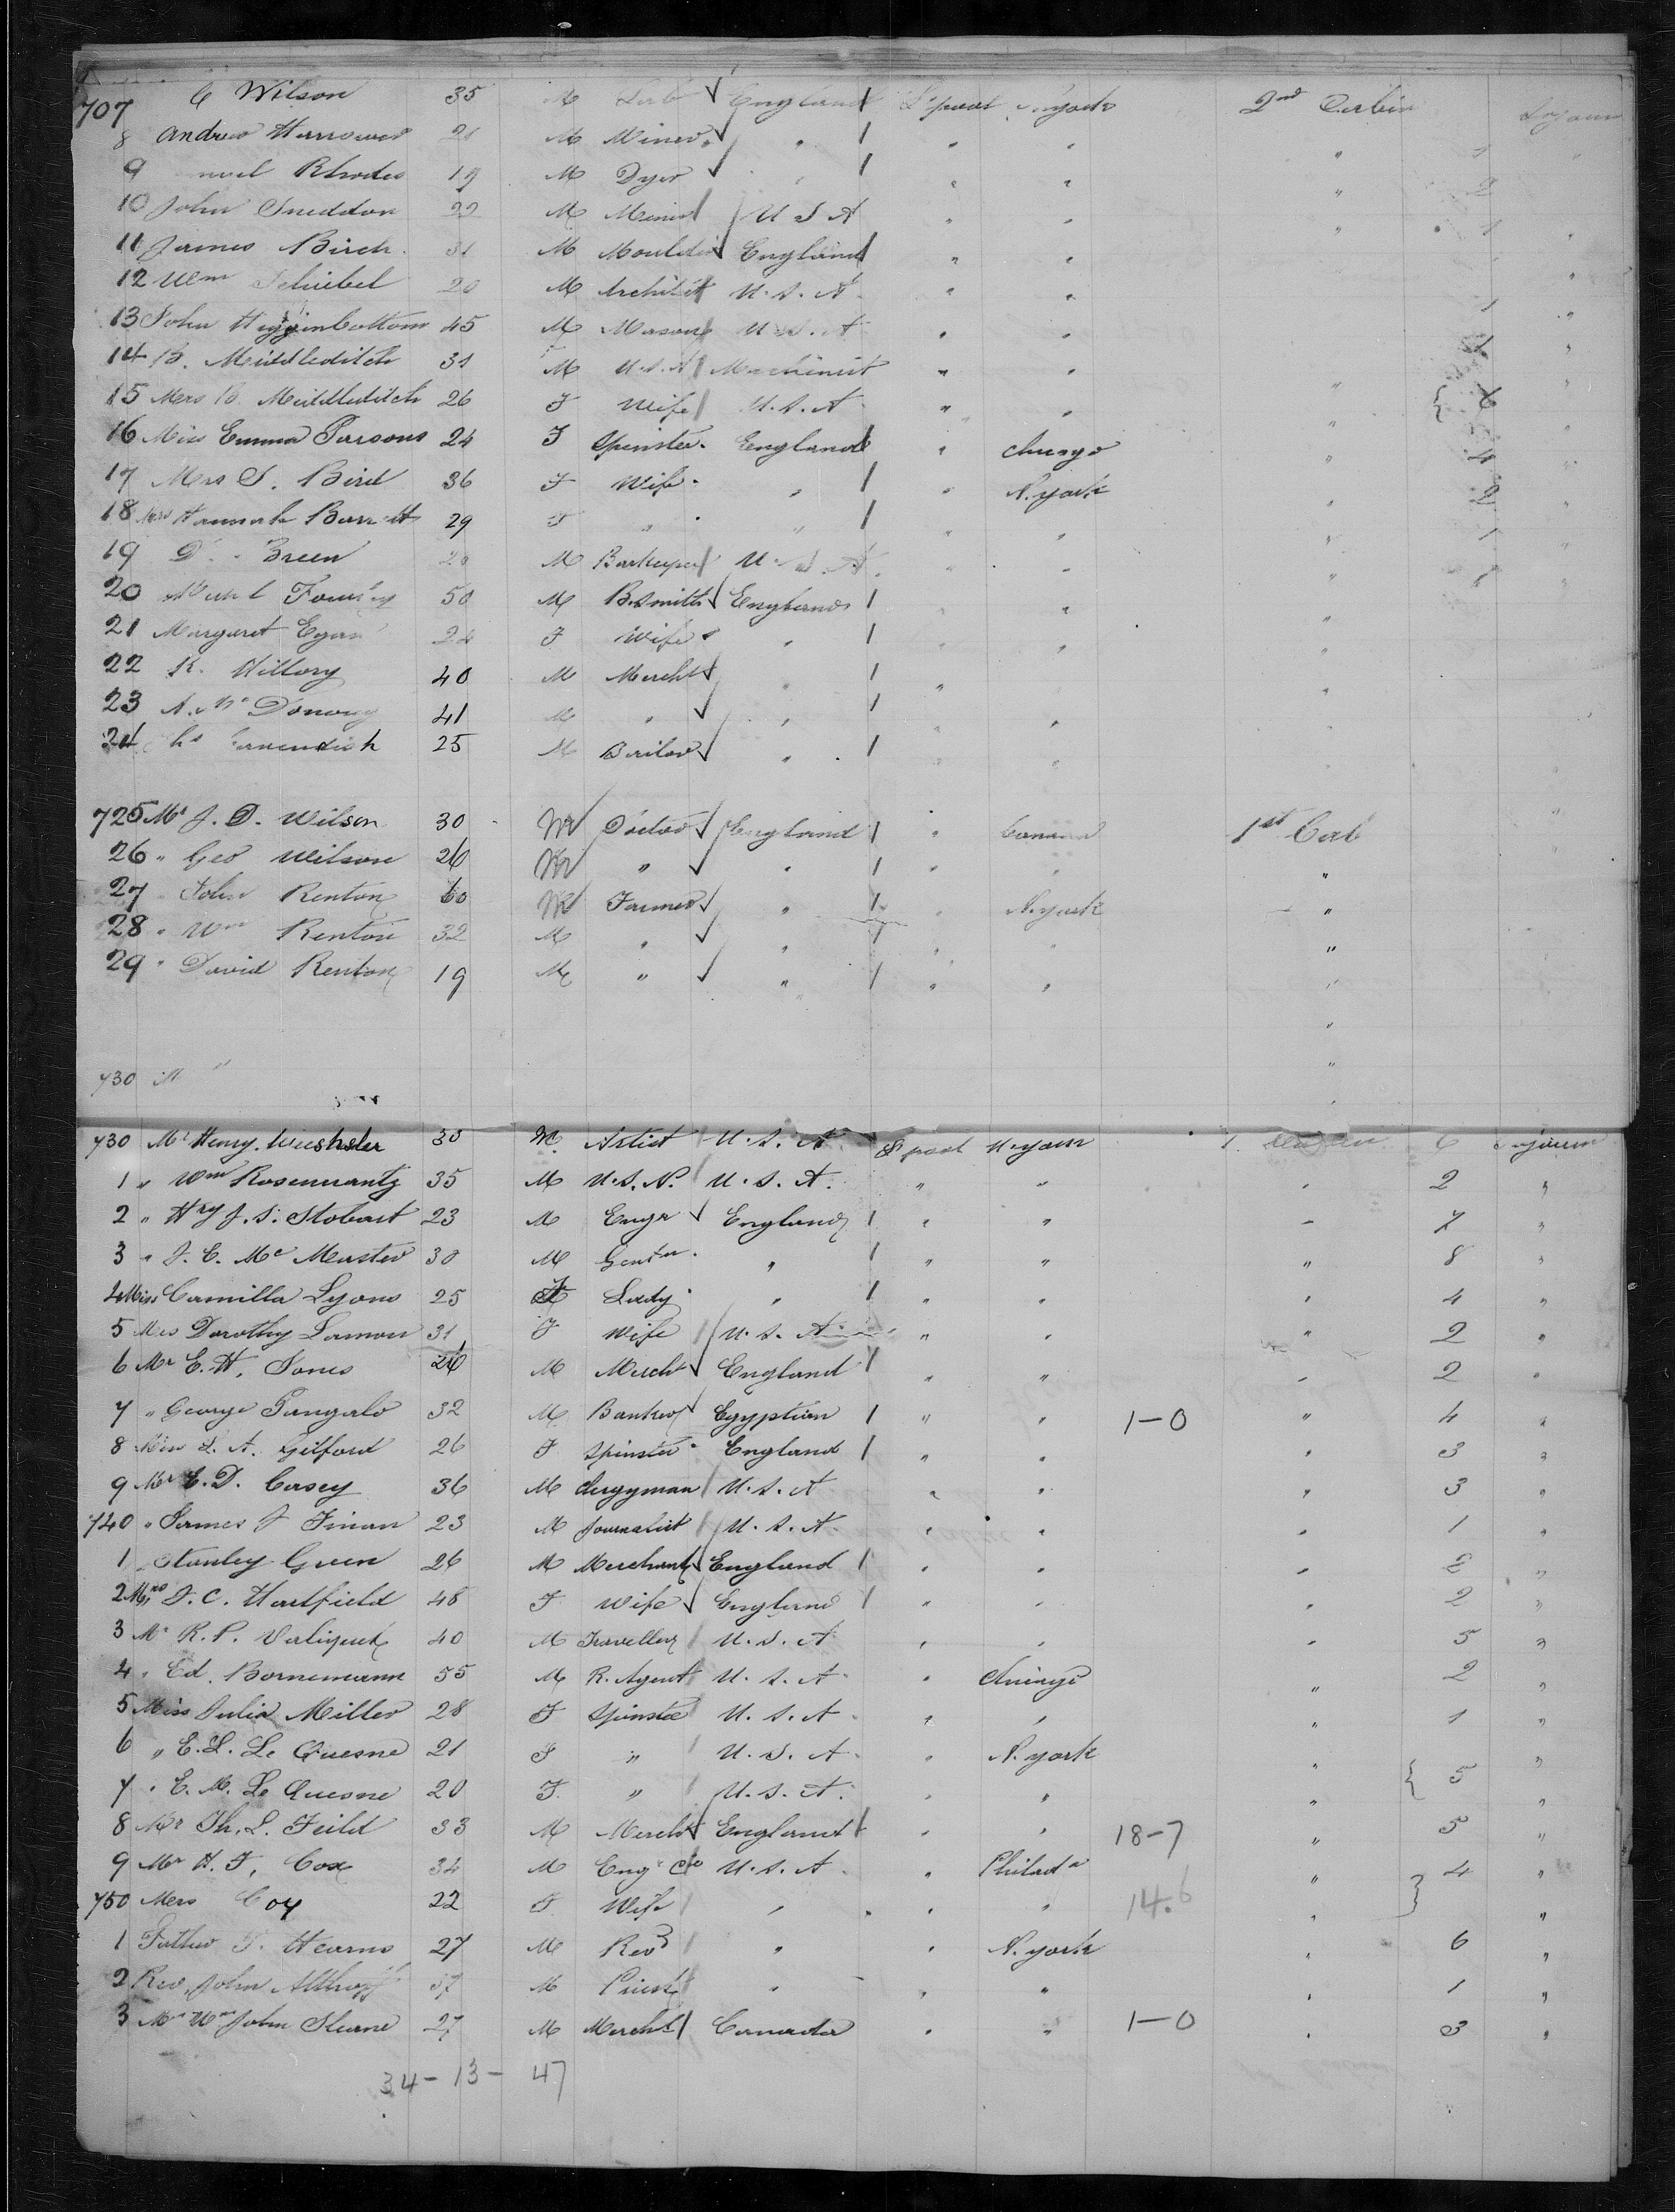 707 C Wilson 35 M Lab England L'pool N. York 2nd Cabin Sojourn
8 Andrew 21 M Miner " " " " 1 "
9 Rhodes 19 M Dyer " " " " 2
10 John Sneddon 22 M Miner U S A " " " 1 "
11 James Birch 31 M Moulder England " "
12 Wm Schiebel 20 M Architect U. S. A. " "
13 John Higginbottom 45 M Mason U. S. A " " 1 "
14 B. Middleditch 31 M U. S. A Machinist " "
15 Mrs B. Middleditch 26 F Wife U. S. A " " "
16 Miss Emma Parsons 24 F Spinster England " Chicago " 4 "
17 Mrs S. Bird 36 F Wife " " N. York " 2 "
18 Mrs Hannah Barrett 29 F " " " " " 1 "
19 D. Breen M Barkeeper U. S. A. " " " 1 "
20 50 M B. Smith England " " "
21 Margaret Egan 24 F Wife " " " "
22 R. Hillory 40 M Mercht " " "
23 41 M " " "
24 25 M " " "
725 Mr J. D. Wilson 30 M Doctor England " Canada 1st Cab "
26 " Geo Wilson 26 M " " " " " "
27 " John Renton 60 M Farmer " " N. York "
28 " Wm Renton 32 M " " " " "
29 " David Renton 19 M " " " " "
"
730 M "
730 Mr Henry Wechsler 30 M Artist U. S. A L'pool N. York Sojourn
1 " Wm Rosencrantz 35 M U. S. N. U. S. A. " " " 2 "
2 " Hry J. S. Stobart 23 M Engr England " " " 7 "
3 " J. C. Mc Master 30 M Gentn " " " " 8 "
4 Miss Camilla Lyons 25 F Lady " " " " 4 "
5 Mrs Dorothy Lamon 31 F Wife U. S. A " " " 2 "
6 Mr E. H. Jones 26 M Mercht England " " " 2 "
7 " George Pangalo 32 M Banker Egyptian " " 1-0 " 4 "
8 Miss L. A. Gilford 26 F Spinster England " " " 3 "
9 Mr E. D. Casey 36 M Clergyman U. S. A " " " 3 "
740 " James J Finan 23 M Journalist U. S. A. " " " 1 "
1 " Stanley Green 26 M Merchant England " " " 2 "
2 Mrs J. C. Hartfield 48 F Wife England " " " 2 "
3 Mr R. P. 40 M Traveller U. S. A " " " 5 "
4 " Ed. Bornemann 55 M R. Agent U. S. A " Chicago " 2 "
5 Miss Julia Miller 28 F Spinster U. S. A " " " 1 "
6 " E. L. Le Quesne 21 F " U. S. A " N. York " 5 "
7 " E. M. Le Quesne 20 F " U. S. A. " " " "
8 Mr Th. L. Feild 33 M Mercht England " " 18-7 " 5 "
9 Mr H. F. Cox 34 M Engr U. S. A " Philada " 4 "
750 Mrs Coy 22 F Wife " " " 14.6 " "
1 Father P. Hearns 27 M Revd " " N. York " 6 "
2 Rev. John 37 M Priest " " " " 1 "
3 Mr Wm John 27 M Mercht Canada " " 1-0 " 3 "
34 - 13 - 47